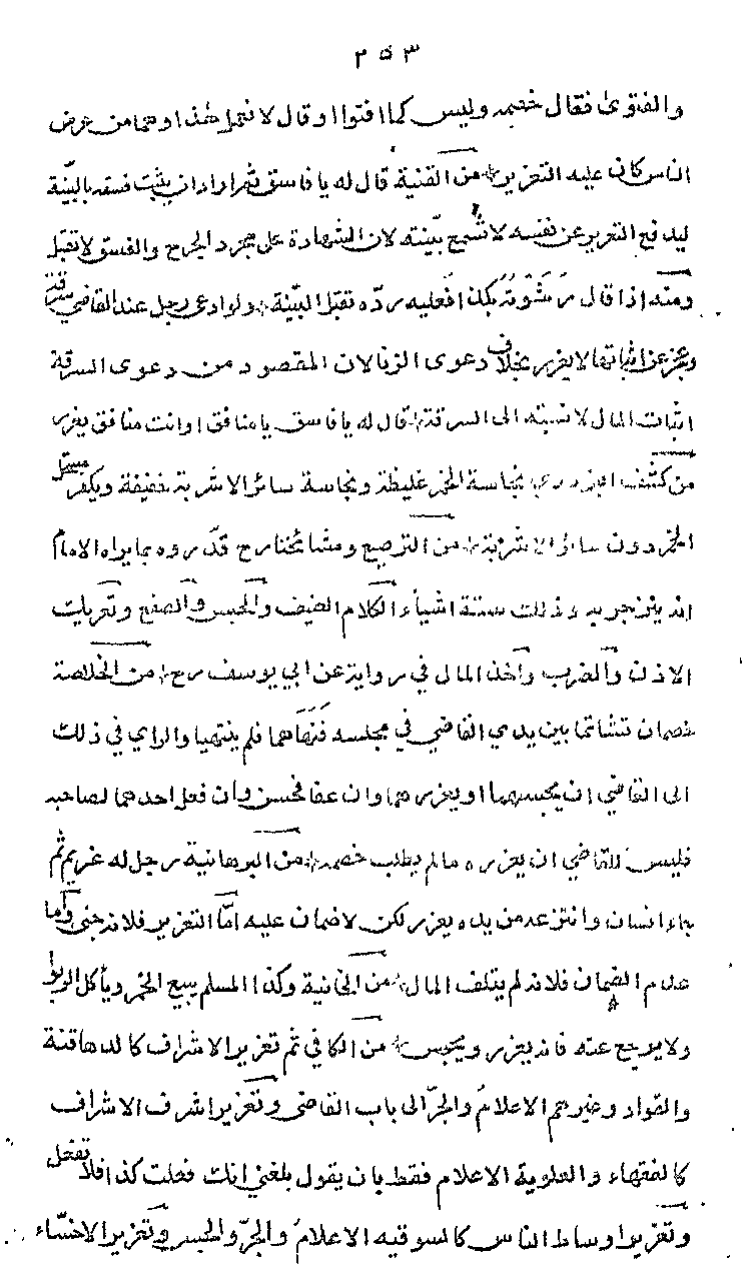 ٢٥٣
والفتوى فقال خصمه وليس كما افتوا او قال لا نعمل بهذا وهما من عرض
الناس كان عليه التعزير * من القنية قال له يا فاسق ثم اراد ان يثبت فسقه بالبينة
ليدفع التعزير عن نفسه لا تسمع بينته لان الشهادة على مجرد الجرح والفسق لا تقبل
ومنه اذا قال رشوته بكذا فعليه رده تقبل البينة * ولو ادعى رجل عند القاضي سرقة
وعجز عن اثباتها لا يعزر بخلاف دعوى الزنا لان المقصود من دعوى السرقة
اثبات المال لا نسبته الى السرقة * قال له يا فاسق يا منافق او انت منافق يعزر
من كشف نجاسة الخمر غليظة ونجاسة سائر الاشربة خفيفة ويكفر مستحل
الخمر دون سائر الاشربة * من الترصيع ومشائخنا رح قدروه بما يراه الامام
انه ينزجر به وذلك ستة اشياء الكلام العنيف والحبس والصفع وتعريك
الاذن والضرب واخذ المال في رواية عن ابي يوسف رح * من الخلاصة
خصمان تشاتما بين يدي القاضي في مجلسه فنهاهما فلم ينتهيا والراي في ذلك
الى القاضي ان يحبسهما او يعزرهما وان عفا فحسن وان فعل احدهما لصاحبه
فليس للقاضي ان يعزره ما لم يطلب خصمه * من البرهانية رجل له غريم ثم
جاء انسان وانتزعه من يده يعزر لكن لا ضمان عليه اما التعزير فلانه جنى واما
عدم الضمان فلانه لم يتلف المال * من الخانية وكذا المسلم يبيع الخمر وياكل الربوا
ولا يرجع عنه فانه يعزر ويحبس * من الكافي ثم تعزير الاشراف كالدهاقنة
والقواد وغيرهم الاعلام والجر الى باب القاضي وتعزير اشرف الاشراف
كالفقهاء والعلوية الاعلام فقط بان يقول بلغني انك فعلت كذا فلا تفعل
وتعزير اوساط الناس كالسوقيه الاعلام والجر والحبس وتعزير الاخساء